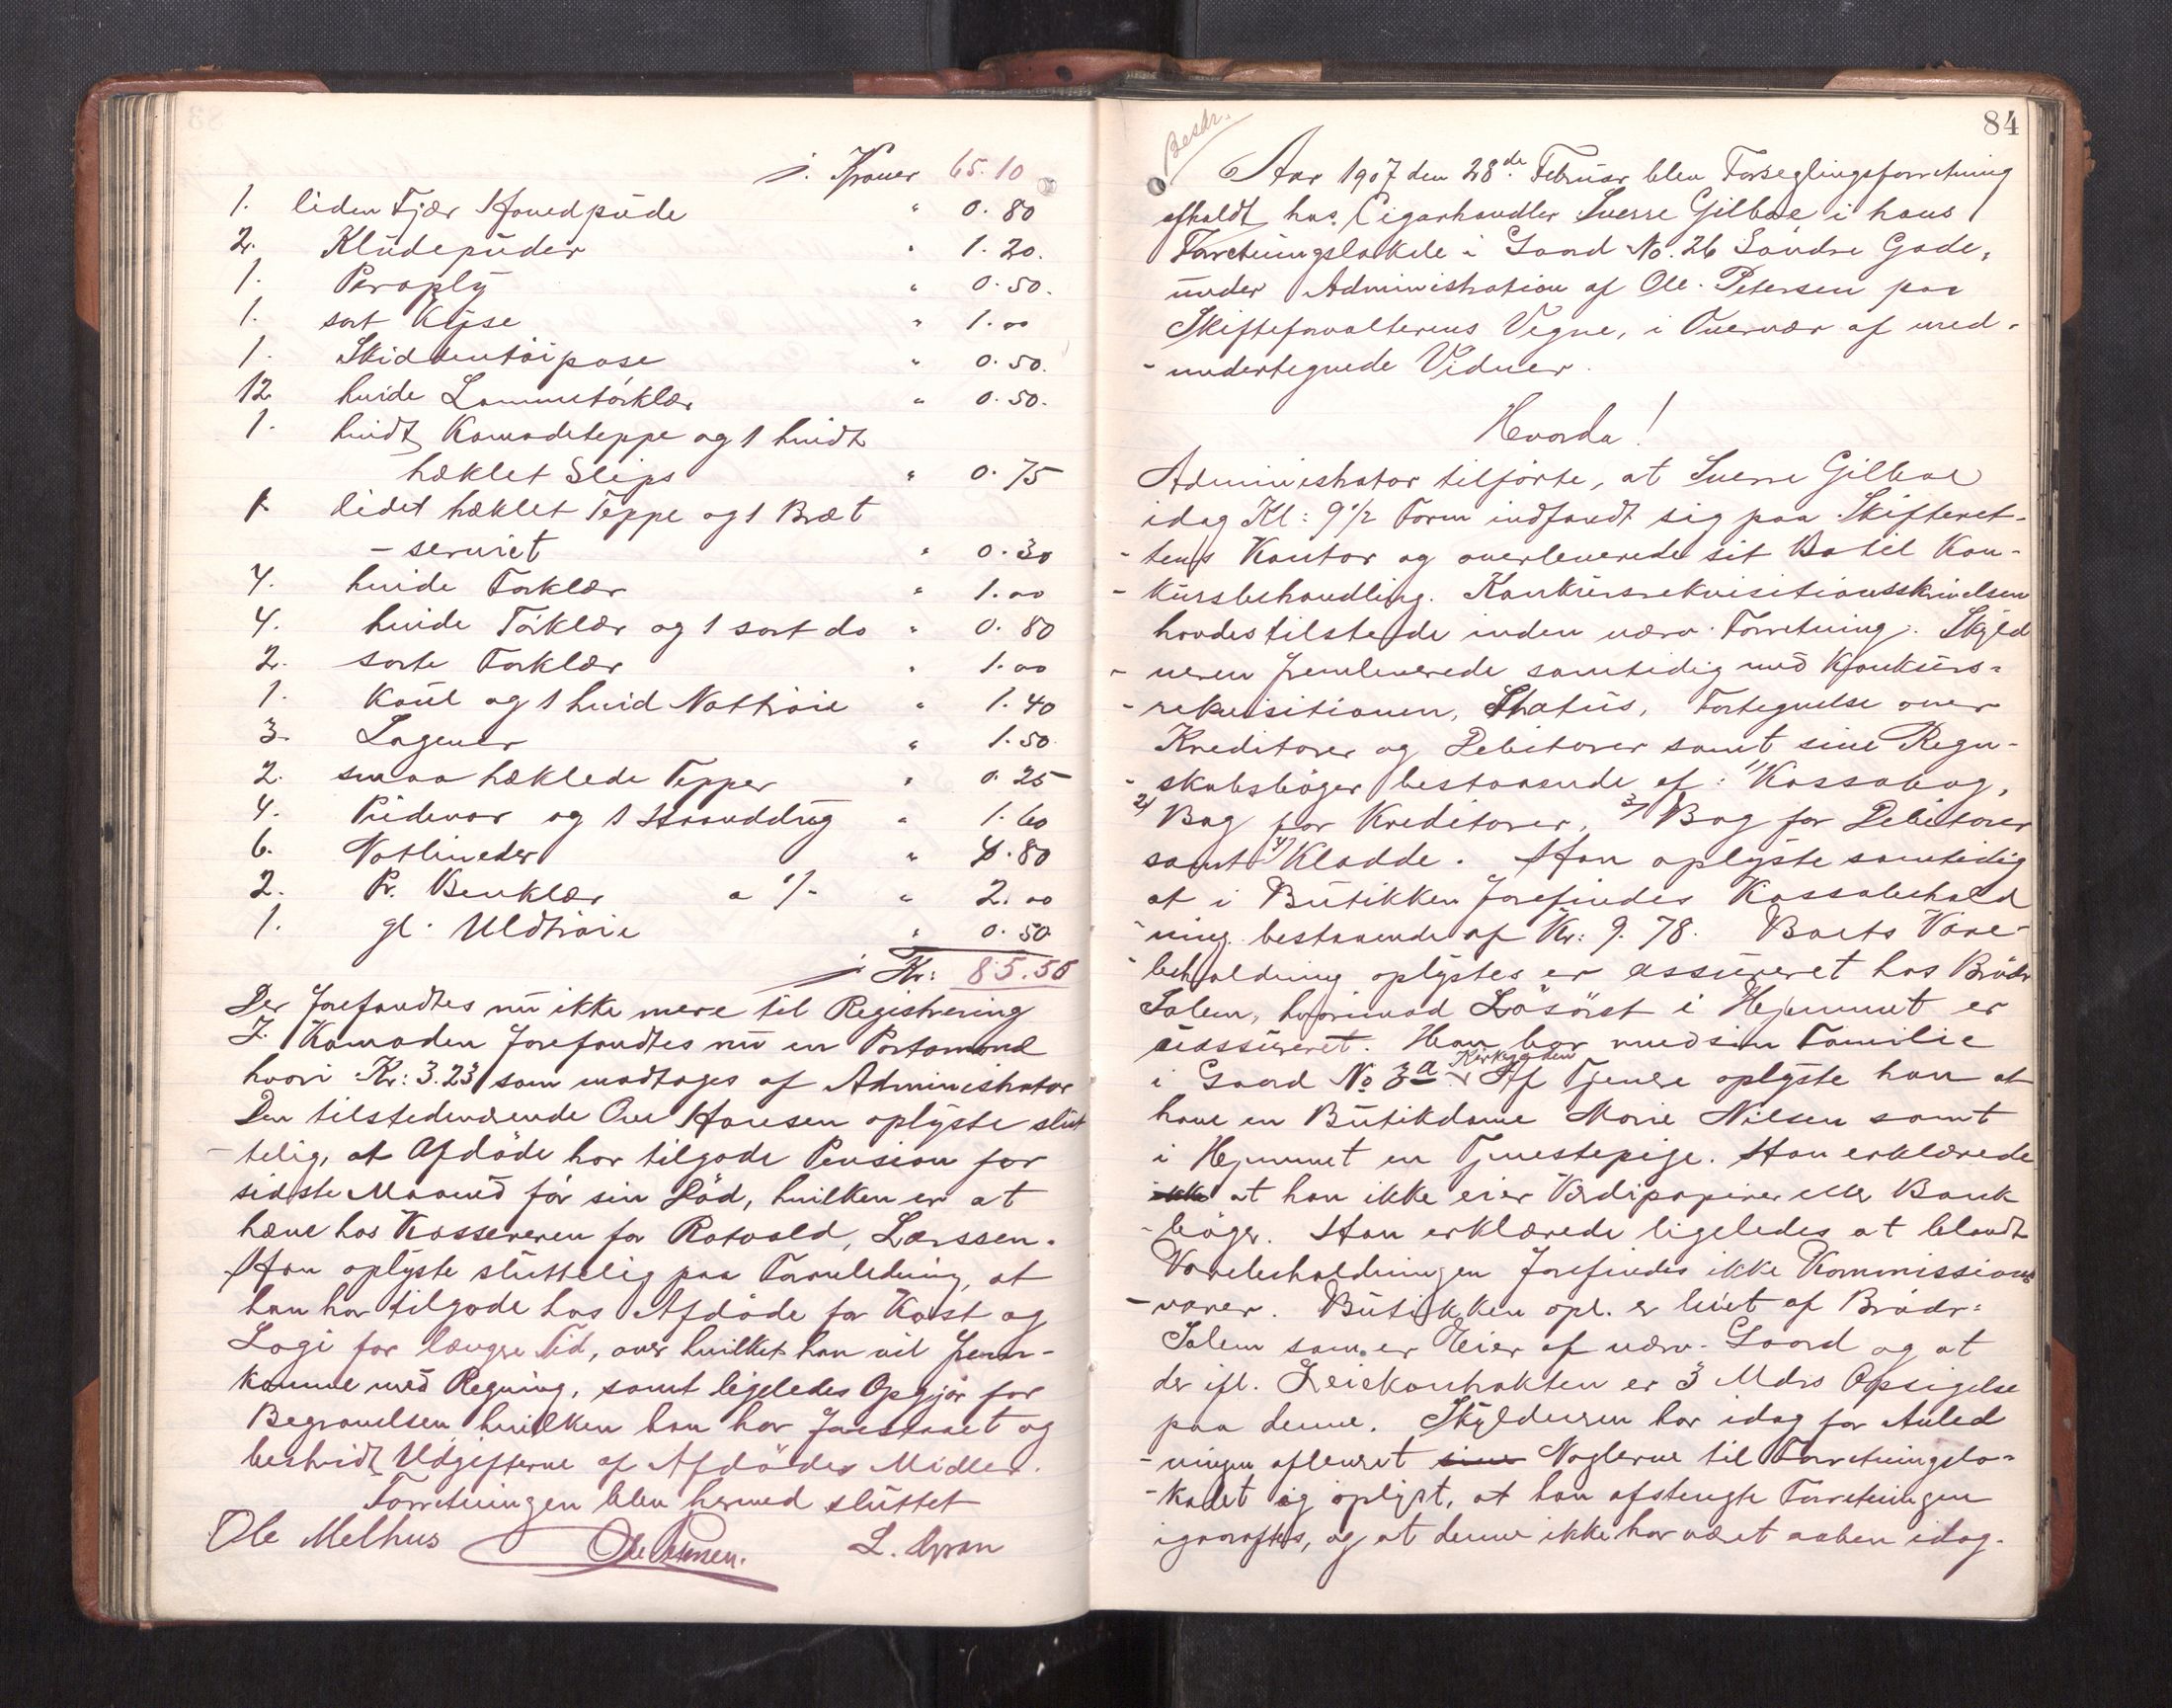 /. Kroner 65.10
1. liden Fjær Hovedpude " 0.80
2. Kludepuder " 1.20.
1. Paraply " 0.50.
1. sort Kyse " 1.00
1. Skiddentøipose " 0.50.
12 hvide Lommetørklær " 0.50.
1. hvidt Komodeteppe og 1 hvidt
hæklet Slips " 0.75
1. lidet hæklet Teppe og 1 Bræt
- serviet " 0.30
7. hvide Forklær " 1.00
4. hvide Tørklær og 1 sort do " 0.80
2. sorte Forklær " 1.00
1. Kaul og 1 hvid Nattrøie " 1.40
3. Lagener " 1.50
2. smaa hæklede Tepper " 0.25
4. Pudevar og 1 Haanddug " 1.60
6. Natlineder " 4.80
2. Pr. Benklær a 1/- " 2.00
1. gl. Uldtrøie " 0.50
/. Kr: 85.50
Der forefandtes nu ikke mere til Registrering
I Komoden forefandtes nu en Portomoné
hvori Kr: 3.23 som modtages af Administrator
Den tilstedeværende Ove Hansen oplyste slut
- telig, at Afdøde har tilgode Pension for
sidste Maaned før sin Død, hvilken er at
hæve hos Kassereren for Rotvold, Larssen.
Han oplyste sluttelig paa Foranledning, at
han har tilgode hos Afdøde for Kost og
Logi for længre Tid, over hvilket han vil frem-
komme med Regning, samt ligeledes Opgjør for
Begravelsen hvilken han har forestaaet og
bestridt Udgifterne af Afdødes Midler.
Forretningen blev hermed sluttet
Ole Melhus Ole Petersen. L. Gran
84
Beskr.
Aar 1907 den 28de Februar blev Forseglingsforretning
afholdt hos Cigarhandler Sverre Gilboe i hans
Forretningslokale i Gaard No. 26 Søndre Gade,
under Administration af Ole Petersen paa
Skifteforvalterens Vegne, i Overvær af med-
- undertegnede Vidner.
Hvorda!
Administrator tilførte, at Sverre Gilboe
idag Kl: 9 1/2 Form indfandt sig paa Skifteret-
- tens Kontor og overleverede sit Bo til Kon-
- kursbehandling. Konkursrekvisitionsskrivelsen
havdes tilstede under nærv. Forretning. Skyld
- neren fremleverede samtidig med Konkurs-
- rekvisitionen, Status, Fortegnelse over
Kreditorer og Debitorer samt sine Regn-
- skabsbøger bestaaende af: 1) Kassabog,
2) Bog for Kreditorer, 3) Bog for Debitorer
samt 4) Kladde. Han oplyste samtidig
at i Butikken forefindes Kassabehold
- ning bestaaende af Kr: 9.78. Boets Vare-
- beholdning oplystes er assureret hos Brødr
Salem, hvorimod Løsøret i Hjemmet er
uassureret. Han bor med sin Familie
i Gaard No 3a Kirkegaden. Af Tjenere oplyste han at
have en Butikdame Marie Nilsen samt
i Hjemmet en Tjenestepige. Han erklærede
ikke at han ikke eier Værdipapirer eller Bank
- bøger. Han erklærede ligeledes at blandt
Varebeholdningen forefindes ikke Kommissions
- varer. Butikken opl. er leiet af Brødr:
Salem som er Eier af nærv. Gaard og at
der ifl. Leiekontrakten er 3 Mdrs Opsigelse
paa denne. Skyldneren har idag for Anled
- ningen afleveret sine Nøglerne til Forretningslo-
- kalet og oplyst, at han afstengte Forretningen
igaaraftes, og at denne ikke har været aaben idag.